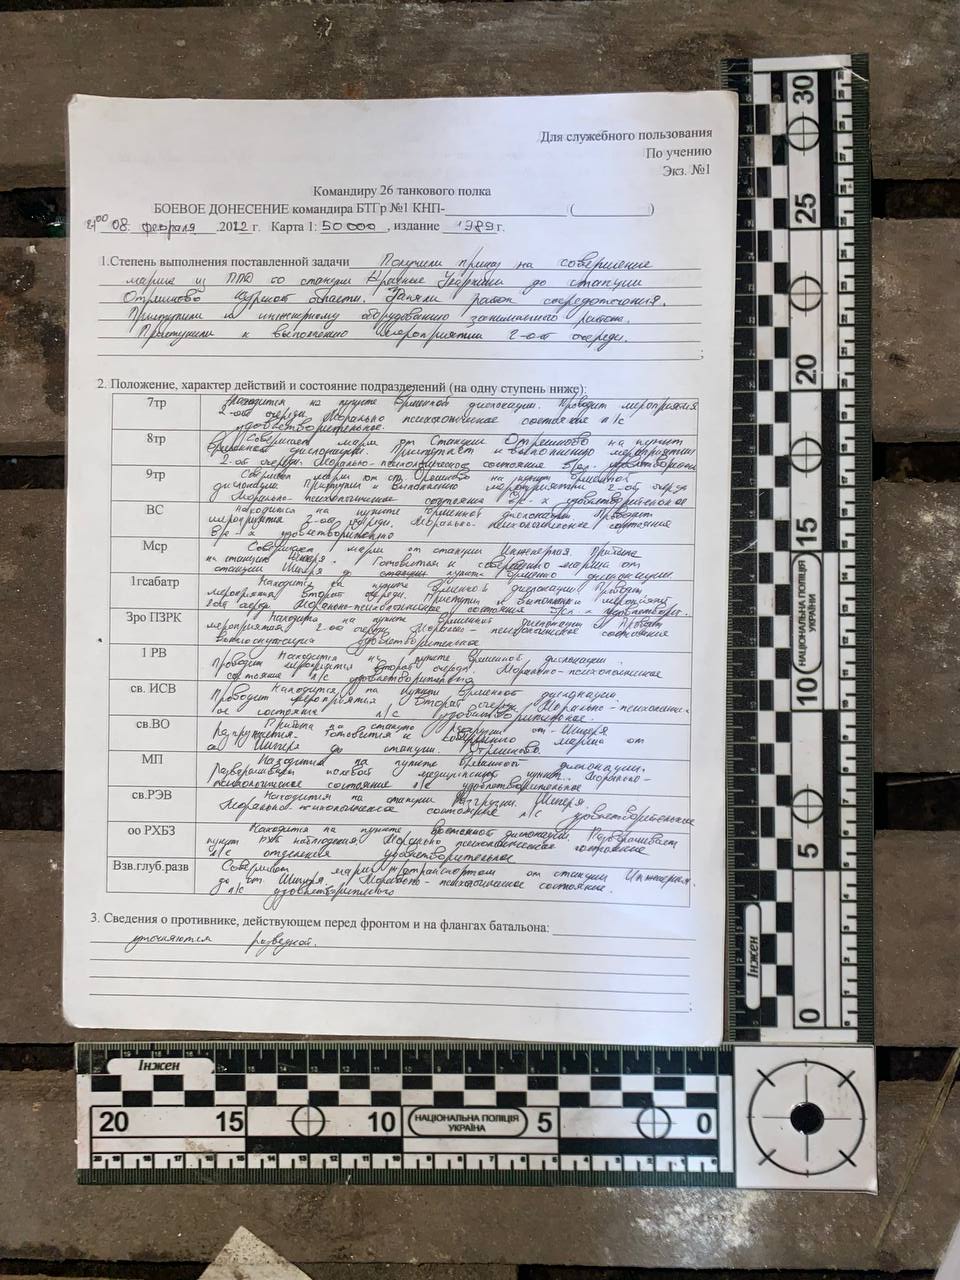 Для служебного пользования
По учению
Экз. №1
Командиру 26 танкового полка
БОЕВОЕ ДОНЕСЕНИЕ командира БТГр №1 КНП- ( )
21⁰⁰ 08. февраля .2022 г. Карта 1: 50 000 , издание 1989 г.
1.Степень выполнения поставленной задачи Получили приказ на совершение
марша из ППД со станции до станции
Отрешково Курской области. Заняли район сосредоточения.
Приступили к инженерному оборудованию занимаемого района.
Приступили к выполнению мероприятий 2-ой очереди.
;
2. Положение, характер действий и состояние подразделений (на одну ступень ниже):
7тр Находится на пункте временной дислокации. Проводит мероприятия
2-ой очереди. Морально психологическое состояние л/с
удовлетворительное.
8тр Совершает марш от Станции Отрешково на пункт
временной дислокации. Приступает к выполнению мероприятий
2-ой очереди. Морально-психологическое состояние
9тр Совершил марш от ст. на пункт временной
дислокации. Приступил к выполнению мероприятий 2-ой очереди
Морально-психологическое состояние удовлетворительное
ВС Находится на пункте временной дислокации. Проводит
мероприятия 2-ой очереди. Морально-психологическое состояние
удовлетворительно
Мср Совершает марш от станции Инженерная. Прибыла
на станцию . Готовится к совершению марша от
станции до пункта временной дислокации.
1гсабатр Находится на пункте временной дислокации Проводит
мероприятия второй очереди. Приступил к выполнению мероприятий
2ой очереди. Морально-психологическое состояние
3ро ПЗРК Находится на пункте временной дислокации Проводит
мероприятия 2-ой очереди Морально-психологическое состояние
военнослужащих удовлетворительное
1 РВ Находится на пункте временной дислокации.
Проводит мероприятия второй очереди. Морально-психологическое
состояние л/с удовлетворительно
св. ИСВ Находится на пункте временной дислокации
Проводит мероприятия второй очереди. Морально-психологическ-
ое состояние л/с удовлетворительное.
св.ВО Прибыла на станцию разгрузки
Разгружается. Готовится к совершению марша от
до станции. Отрешково.
МП Находится на пункте временной дислокации.
Разворачивает полевой медицинский пункт. Морально-
психологическое состояние л/с удовлетворительное
св.РЭВ Находится на станции разгрузки.
Морально психологическое состояние л/с удовлетворительное
оо РХБЗ Находится на пункте временной дислокации. Разворачивает
пункт наблюдения. Морально психологическое состояние
л/с отделения удовлетворительное
Взв.глуб.разв Совершает марш от станции Инженерная.
до ст. Морально-психологическое состояние.
л/с удовлетворительное
3. Сведения о противнике, действующем перед фронтом и на флангах батальона:
уточняются разведкой.
;
30
25
20
15
НАЦІОНАЛЬНА ПОЛІЦІЯ
УКРАЇНИ
10
5
0
Інжен
Інжен
20 15 10 5 0
НАЦІОНАЛЬНА ПОЛІЦІЯ
УКРАЇНА